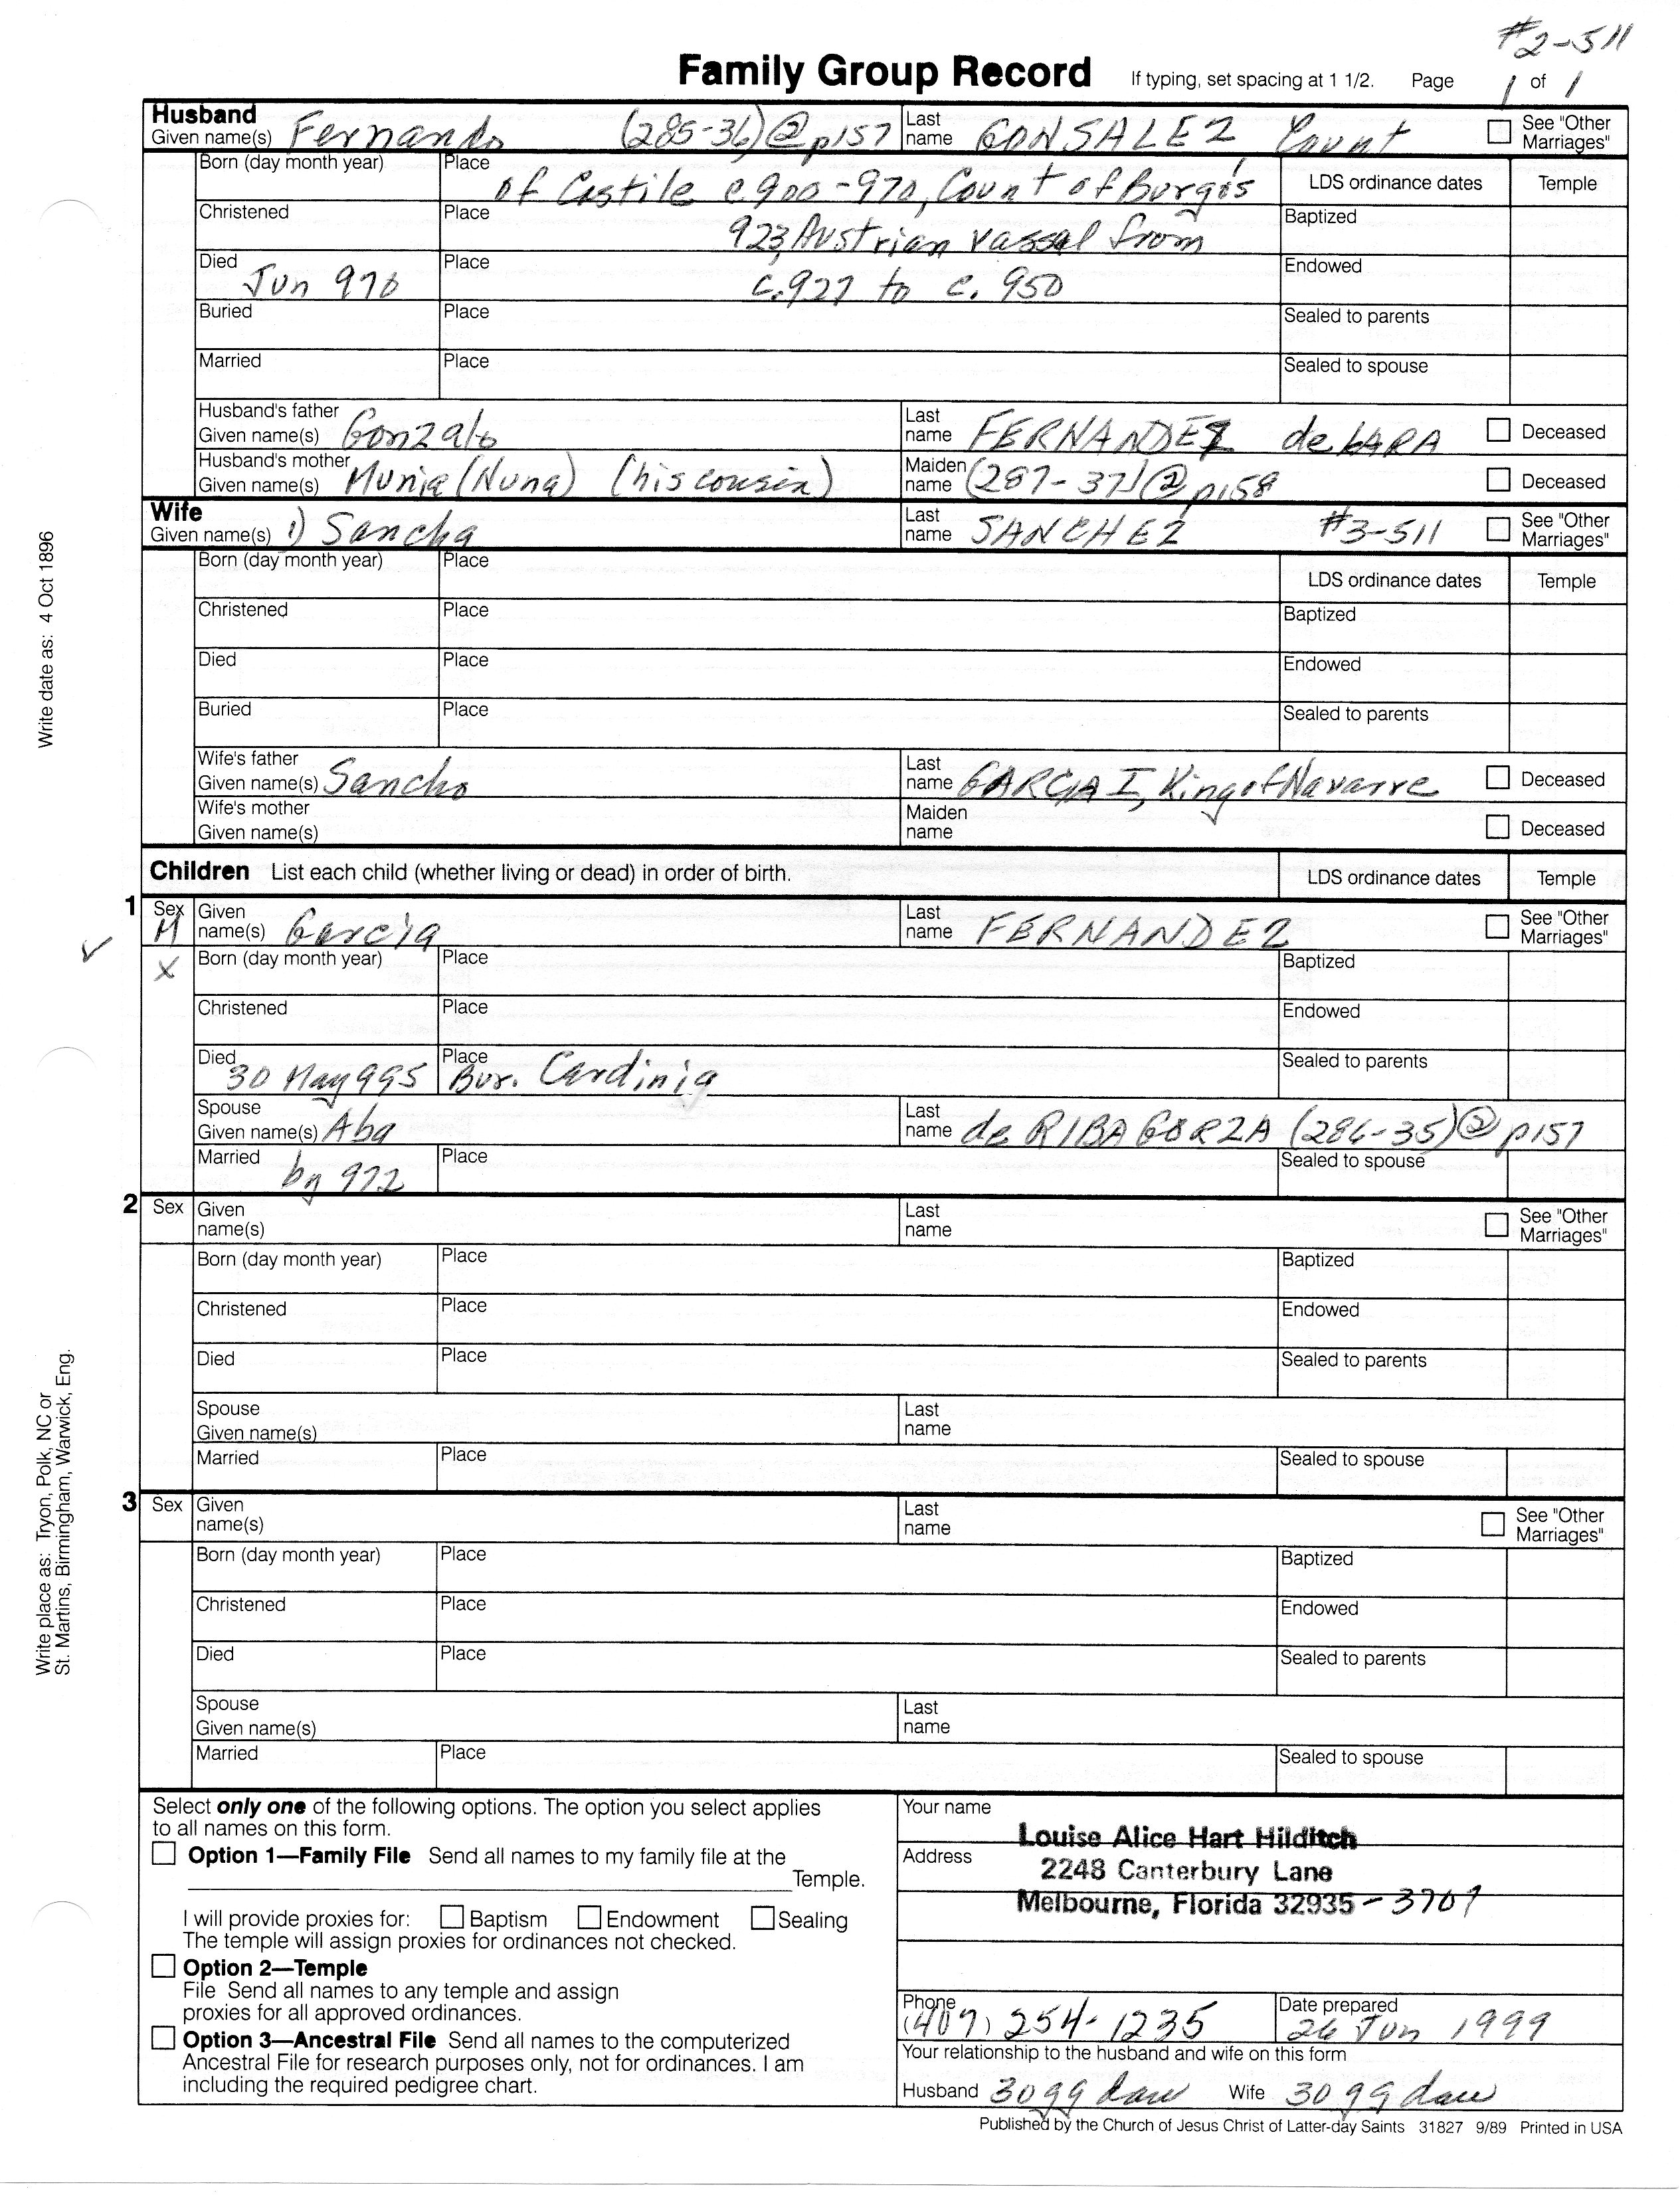 #2-511
Family Group Record If typing, set spacing at 1 1/2. Page 1 of 1
Husband
Given name(s) Fernando (285-36)@p157 Last name GONSALEZ Count See "Other Marriages"
Born (day month year) Place of Castile c900-970, Count of Burgos LDS ordinance dates Temple
Christened Place 923, Austrian vassal from Baptized
Died Jun 970 Place c.927 to c. 950 Endowed
Buried Place Sealed to parents
Married Place Sealed to spouse
Husband's father Given name(s) Gonzalo Last name FERNANDEZ de LARA Deceased
Husband's mother Given name(s) Munia (Nuna) (his cousin) Maiden name (287-37)@p158 Deceased
Wife
Given name(s) 1) Sancha Last name SANCHEZ #3-511 See "Other Marriages"
Born (day month year) Place LDS ordinance dates Temple
Christened Place Baptized
Died Place Endowed
Buried Place Sealed to parents
Wife's father Given name(s) Sancho Last name GARCIA I, King of Navarre Deceased
Wife's mother Given name(s) Maiden name Deceased
Children List each child (whether living or dead) in order of birth. LDS ordinance dates Temple
1 Sex M Given name(s) Garcia Last name FERNANDEZ See "Other Marriages"
X Born (day month year) Place Baptized
Christened Place Endowed
Died 30 May 995 Place Bur. Cardinia Sealed to parents
Spouse Given name(s) Aba Last name de RIBAGORZA (286-35)@p157
Married by 972 Place Sealed to spouse
2 Sex Given name(s) Last name See "Other Marriages"
Born (day month year) Place Baptized
Christened Place Endowed
Died Place Sealed to parents
Spouse Given name(s) Last name
Married Place Sealed to spouse
3 Sex Given name(s) Last name See "Other Marriages"
Born (day month year) Place Baptized
Christened Place Endowed
Died Place Sealed to parents
Spouse Given name(s) Last name
Married Place Sealed to spouse
Select only one of the following options. The option you select applies
to all names on this form.
Option 1—Family File Send all names to my family file at the
Temple.
I will provide proxies for: Baptism Endowment Sealing
The temple will assign proxies for ordinances not checked.
Option 2—Temple
File Send all names to any temple and assign
proxies for all approved ordinances.
Option 3—Ancestral File Send all names to the computerized
Ancestral File for research purposes only, not for ordinances. I am
including the required pedigree chart.
Your name Louise Alice Hart Hilditch
Address 2248 Canterbury Lane
Melbourne, Florida 32935-3707
Phone (407) 254-1235 Date prepared 26 Jun 1999
Your relationship to the husband and wife on this form
Husband 30 gg dau Wife 30 gg dau
Published by the Church of Jesus Christ of Latter-day Saints 31827 9/89 Printed in USA
Write date as: 4 Oct 1896
Write place as: Tryon, Polk, NC or
St. Martins, Birmingham, Warwick, Eng.